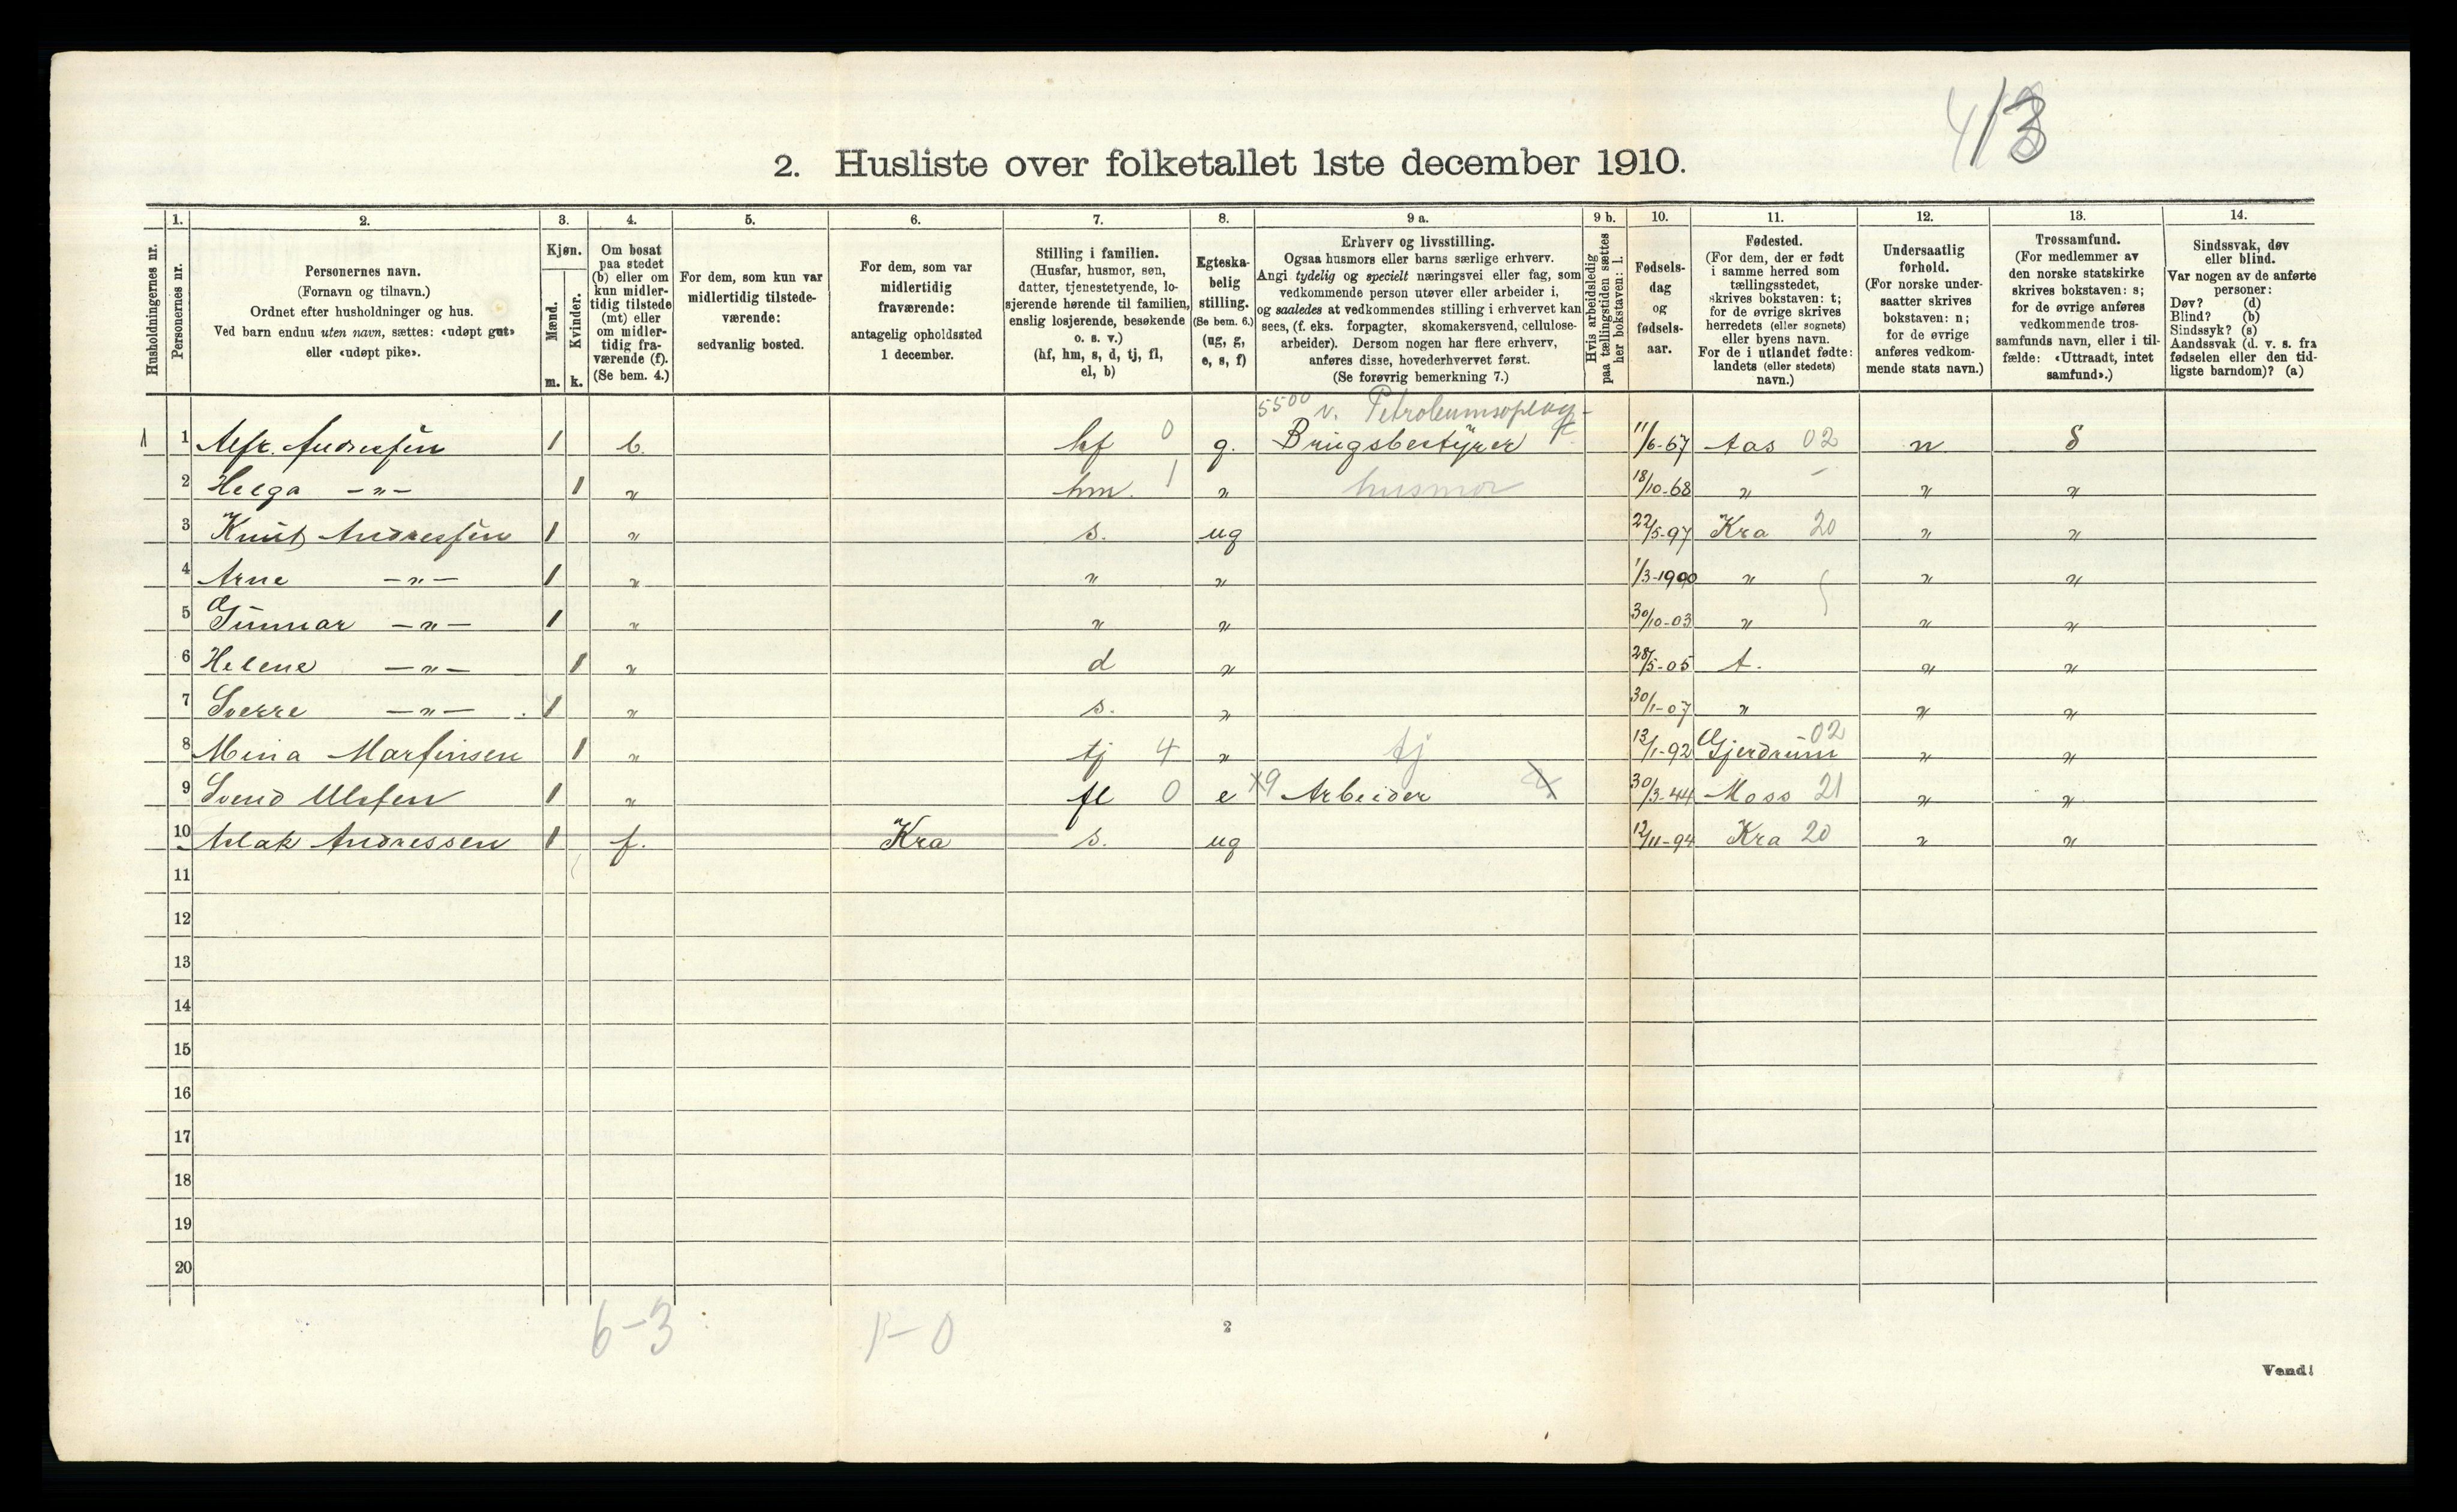 413
2. Husliste over folketallet 1ste december 1910.
Husholdningernes nr.
1.
Personernes nr.
2.
Personernes navn.
(Fornavn og tilnavn.)
Ordnet efter husholdninger og hus.
Ved barn endnu uten navn, sættes: «udøpt gut»
eller «udøpt pike».
3.
Kjøn.
Mænd.
Kvinder.
m. k.
4.
Om bosat
paa stedet
(b) eller om
kun midler-
tidig tilstede
(mt) eller
om midler-
tidig fra-
værende (f).
(Se bem. 4.)
5.
For dem, som kun var
midlertidig tilstede-
værende:
sedvanlig bosted.
6.
For dem, som var
midlertidig
fraværende:
antagelig opholdssted
1 december.
7.
Stilling i familien.
(Husfar, husmor, søn,
datter, tjenestetyende, lo-
sjerende hørende til familien,
enslig losjerende, besøkende
o. s. v.)
(hf, hm, s, d, tj, fl,
el, b)
8.
Egteska-
belig
stilling.
(Se bem. 6.)
(ug, g,
e, s, f)
9 a.
Erhverv og livsstilling.
Ogsaa husmors eller barns særlige erhverv.
Angi tydelig og specielt næringsvei eller fag, som
vedkommende person utøver eller arbeider i,
og saaledes at vedkommendes stilling i erhvervet kan
sees, (f. eks. forpagter, skomakersvend, cellulose-
arbeider). Dersom nogen har flere erhverv,
anføres disse, hovederhvervet først.
(Se forøvrig bemerkning 7.)
9 b.
Hvis arbeidsledig
paa tællingstiden sættes
her bokstaven: l.
10.
Fødsels-
dag
og
fødsels-
aar.
11.
Fødested.
(For dem, der er født
i samme herred som
tællingsstedet,
skrives bokstaven: t;
for de øvrige skrives
herredets (eller sognets)
eller byens navn.
For de i utlandet fødte:
landets (eller stedets)
navn.)
12.
Undersaatlig
forhold.
(For norske under-
saatter skrives
bokstaven: n;
for de øvrige
anføres vedkom-
mende stats navn.)
13.
Trossamfund.
(For medlemmer av
den norske statskirke
skrives bokstaven: s;
for de øvrige anføres
vedkommende tros-
samfunds navn, eller i til-
fælde: «Uttraadt, intet
samfund».)
14.
Sindssvak, døv
eller blind.
Var nogen av de anførte
personer:
Døv? (d)
Blind? (b)
Sindssyk? (s)
Aandssvak (d. v. s. fra
fødselen eller den tid-
ligste barndom)? (a)
5500 v. Petroleumsoplag-
1 1 Alfr. Andresen 1 b. hf 0 g. Brugsbestyrer 11/6-67 Aas 02 n. s
2 Helga —„— 1 „ hm. 1 „ husmor 18/10-68 „ „ „
3 Knut Andresen 1 „ s. ug 22/5-97 Kra 20 „ „
4 Arne —„— 1 „ „ „ 1/3-1900 „ „ „
5 Gunnar —„— 1 „ „ „ 30/10-03 „ „ „
6 Helene —„— 1 „ d „ 28/5-05 t. „ „
7 Sverre —„— 1 „ s. „ 30/1-07 „ „ „
8 Mina Martinsen 1 „ tj 4 „ tj 13/1-92 Gjerdrum 02 „ „
9 Svend Ulsfen 1 „ fl 0 e x9 Arbeider 30/3-44 Moss 21 „ „
10 Aslak Andressen 1 f. Kra s. ug 12/11-94 Kra 20 „ „
11
12
13
14
15
16
17
18
19
20
6-3 1-0
2
Vend!